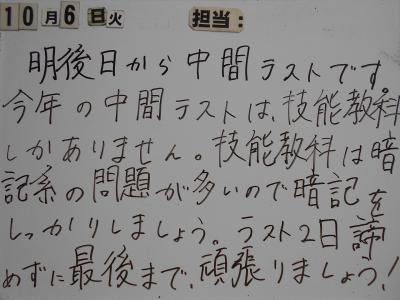 10月6日火 担当:
明後日から中間テストです。
今年の中間テストは、技能教科
しかありません。技能教科は暗
記系の問題が多いので暗記を
しっかりしましょう。ラスト2日諦
めずに最後まで、頑張りましょう!